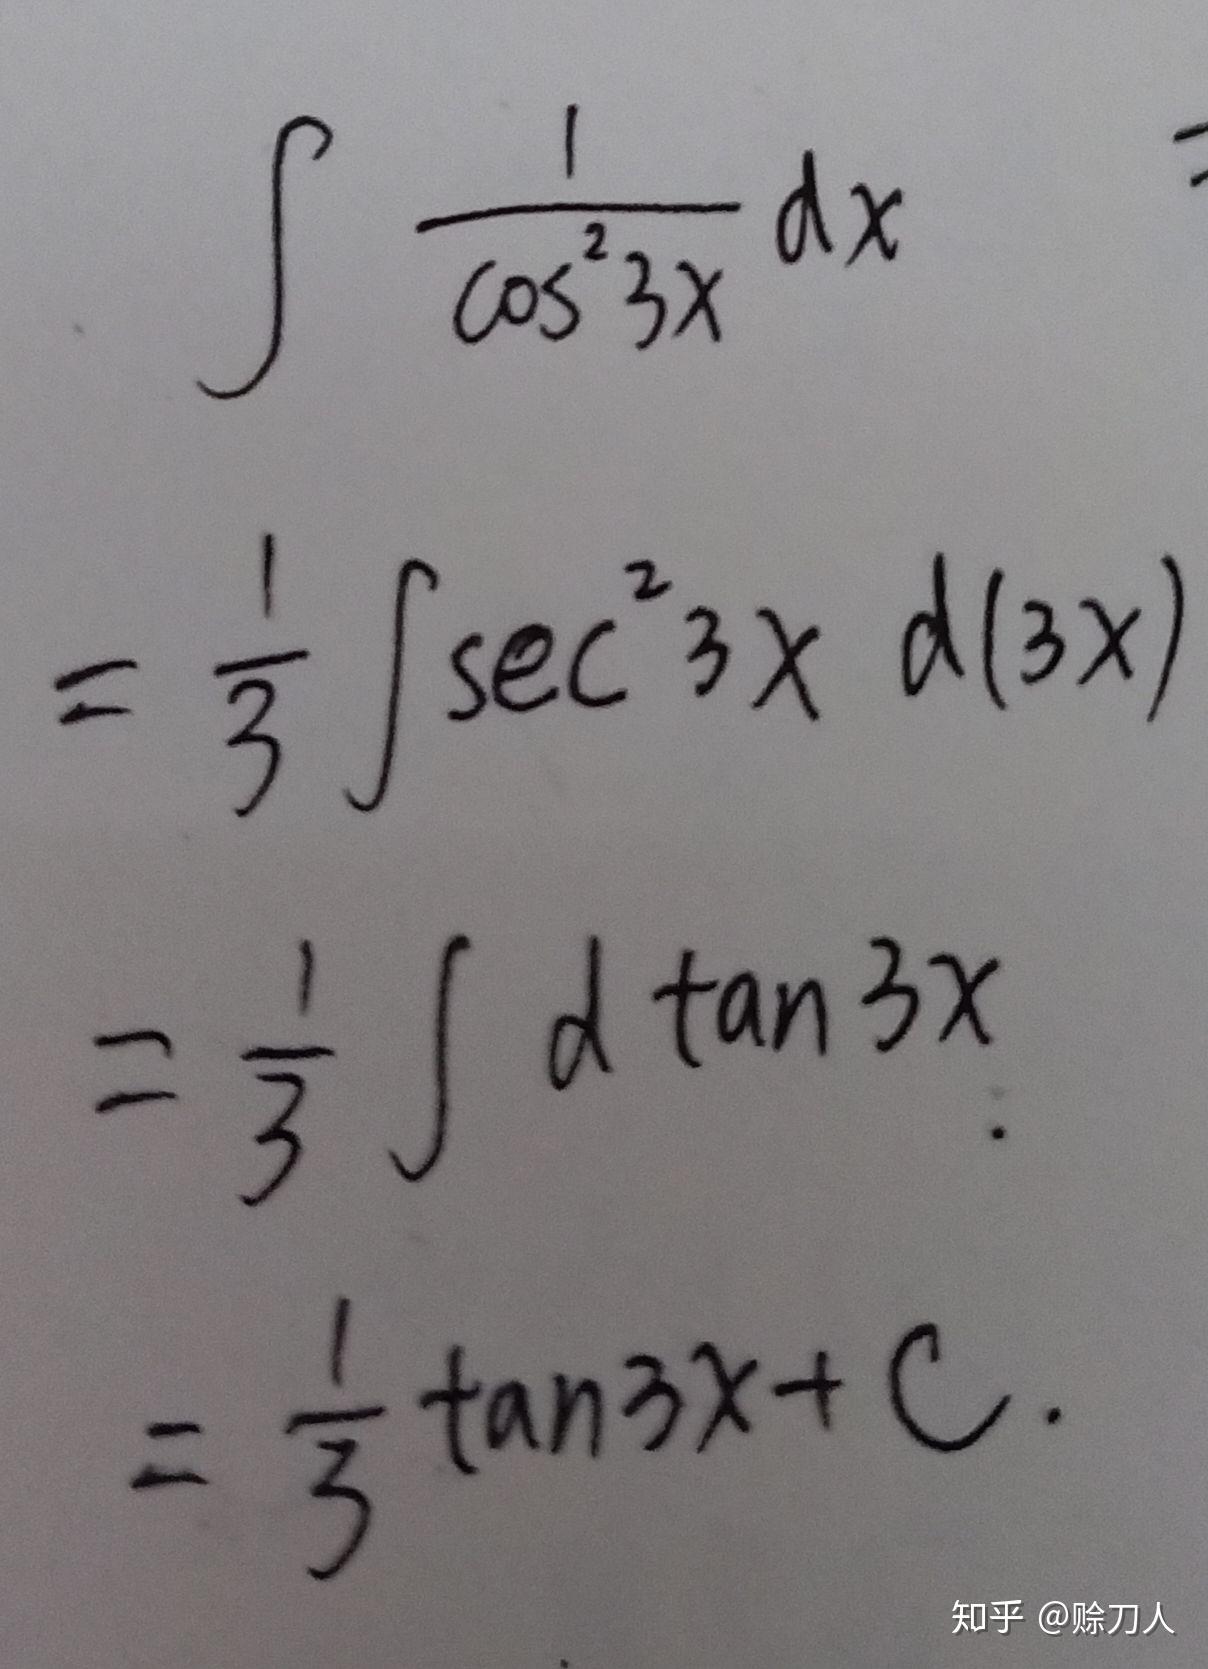 ∫ 1/cos²3x dx =
= 1/3 ∫ sec²3x d(3x)
= 1/3 ∫ d tan3x
= 1/3 tan3x + C.
知乎 @赊刀人